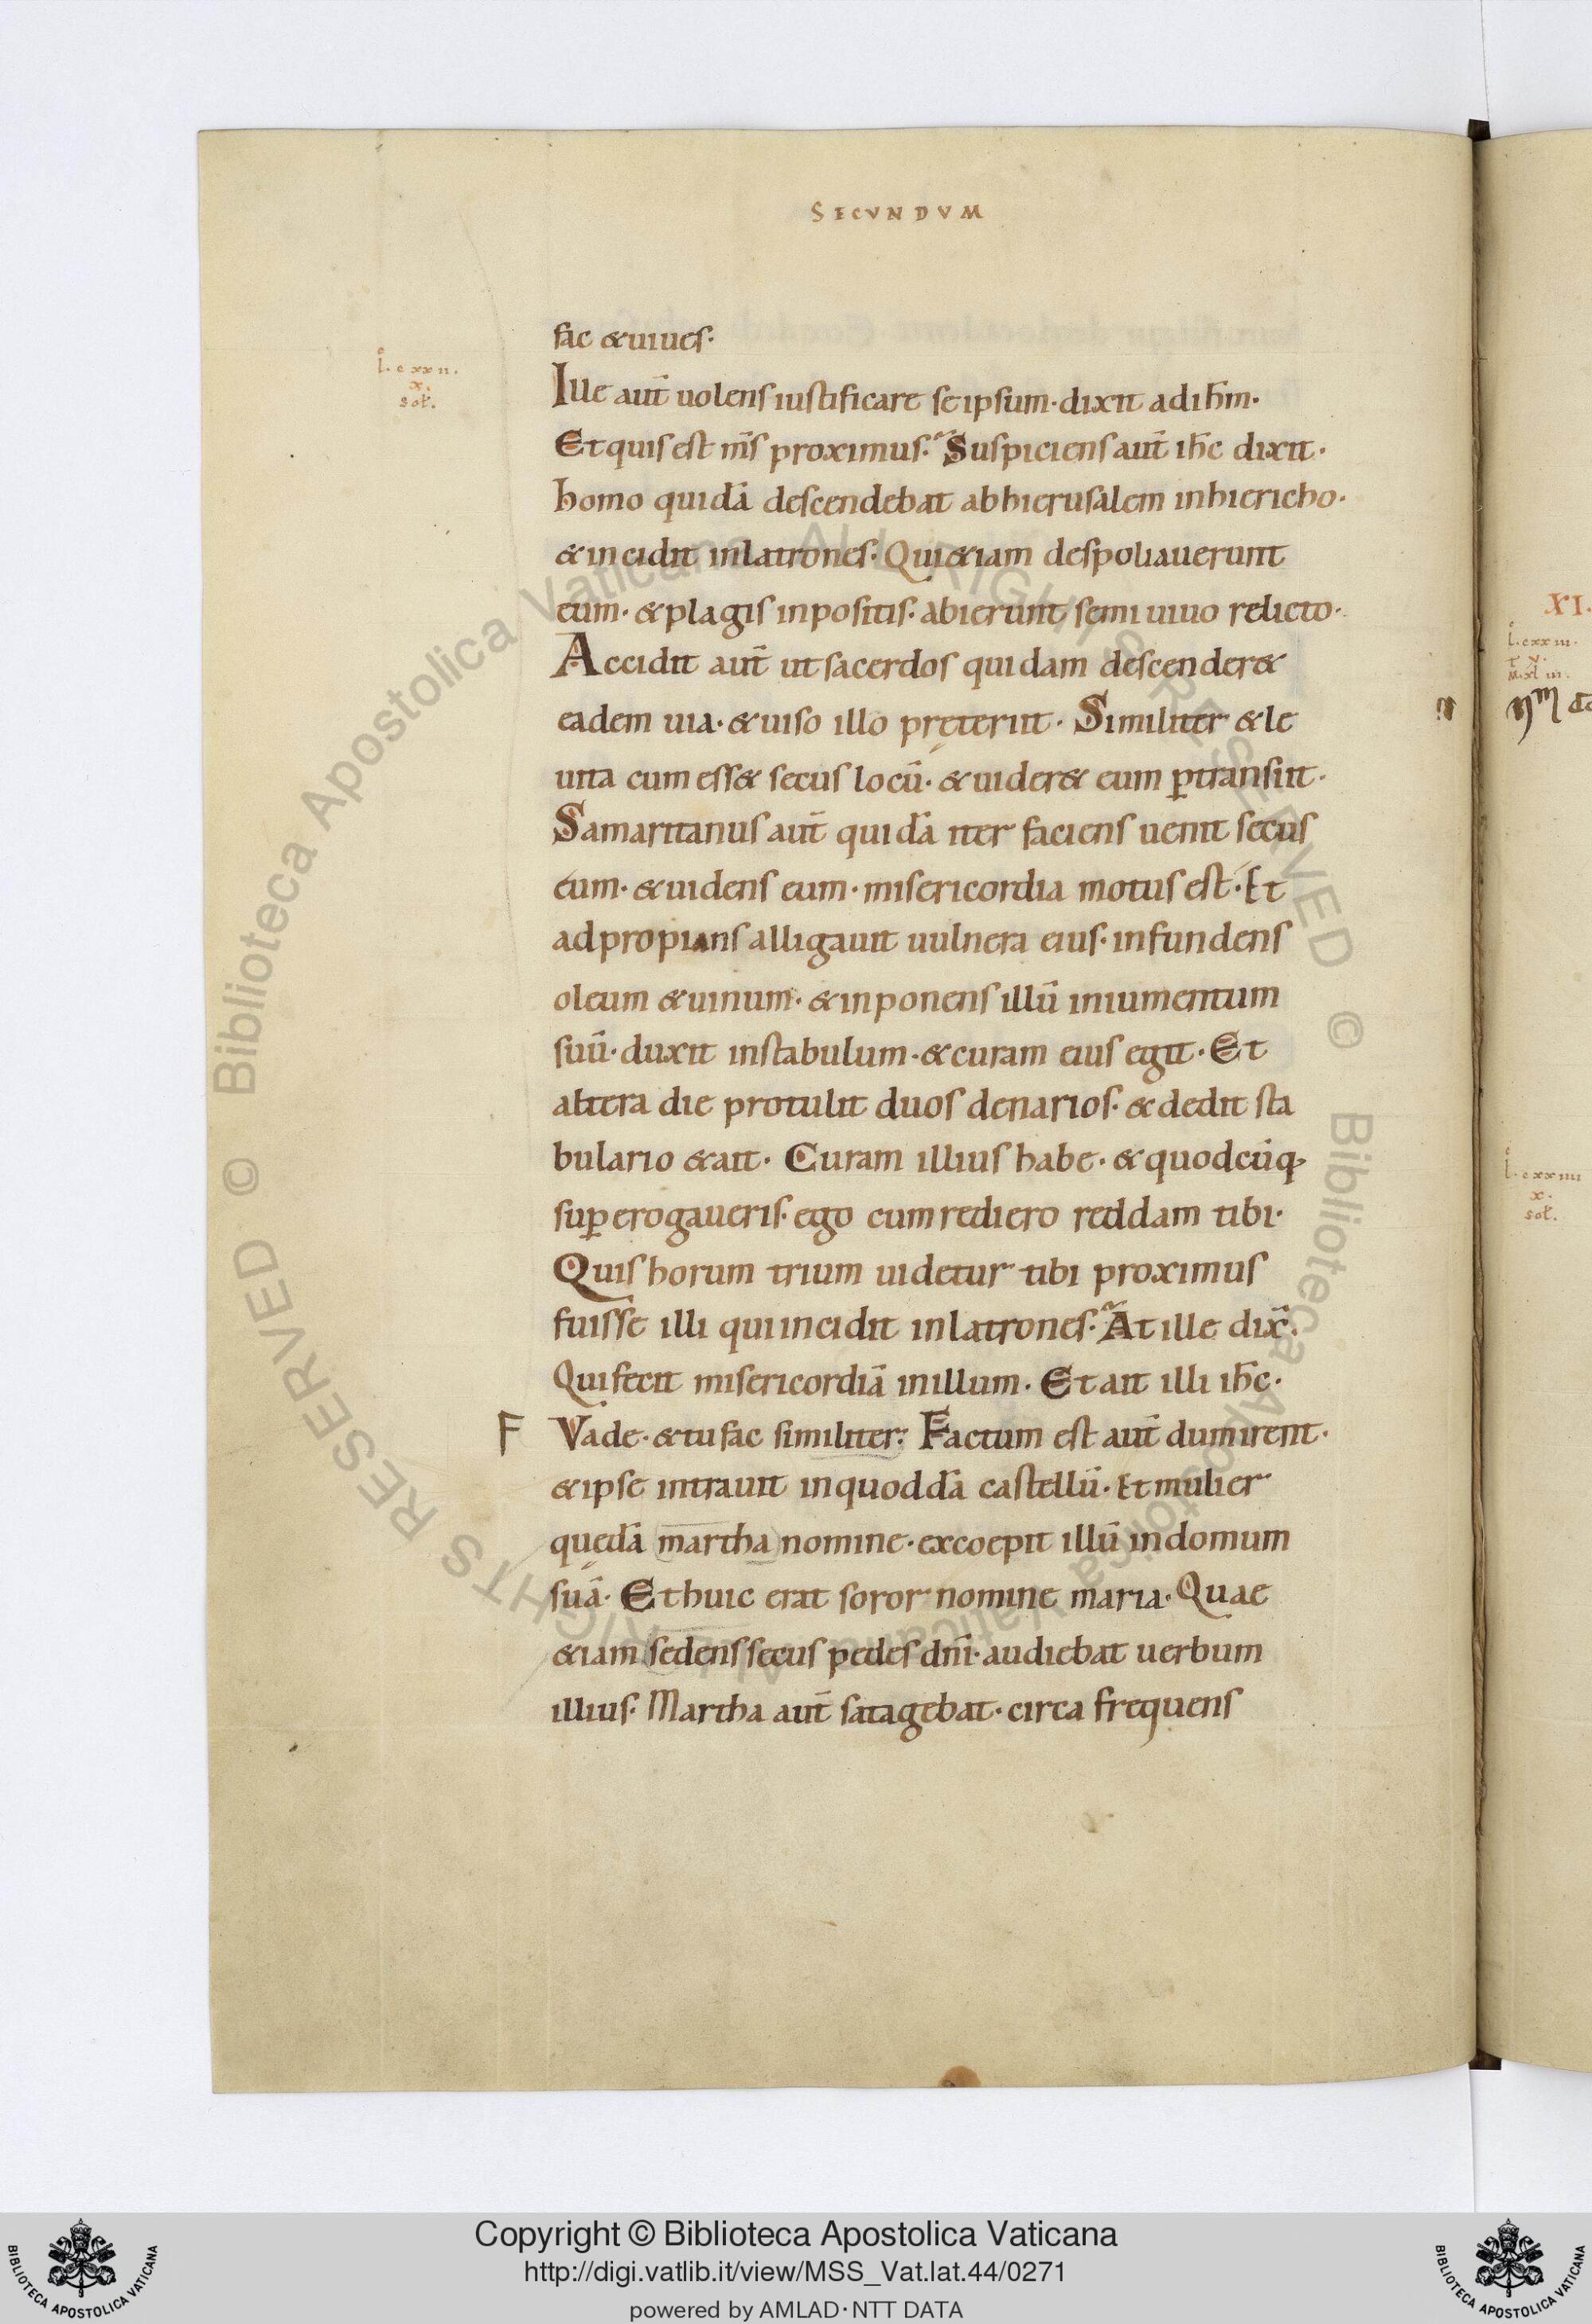 SECVNDVM
fac &uiues·
L. cxxii.
x.
sol̄.
Ille aut̄ uolens iustificare seipsum· dixit ad ih̄m·
Et quis est m̄s proximus· Suspiciens aut̄ ih̄c dixit·
homo quidā descendebat abhierusalem inhiericho·
& incidit inlatrones· Qui&iam despoliauerunt
eum· & plagis inpositis· abierunt semiuiuo relicto·
Accidit aut̄ ut sacerdos quidam descender&
eadem uia· & uiso illo pręteriit· Similiter & le
uita cum ess& secus locū· & uider& eum ꝑtransiit·
Samaritanus aut̄ quidā iter faciens uenit secus
eum· & uidens eum· misericordia motus est· Et
adpropians alligauit uulnera eius· infundens
oleum & uinum· & inponens illū iniumentum
suū· duxit instabulum· & curam eius egit· Et
altera die protulit duos denarios· & dedit sta
bulario & ait· Curam illius habe· & quodcūq;
suꝑerogaueris· ego cum rediero reddam tibi·
Quis horum trium uidetur tibi proximus
fuisse illi qui incidit inlatrones· At ille dix̄·
Qui fecit misericordiā inillum· Et ait illi ih̄c·
F Vade· & tu fac similiter: Factum est aut̄ dum irent·
& ipse intrauit inquoddā castellū· Et mulier
quędā martha nomine· excoepit illū indomum
suā· Et huic erat soror nomine maria· Quae
&iam sedens secus pedes dn̄i· audiebat uerbum
illius· Martha aut̄ satagebat· circa frequens
XI.
L. cxxiii.
L. cxxiiii
x.
sol̄.
© Biblioteca Apostolica Vaticana ALL RIGHTS RESERVED © Biblioteca Apostolica Vaticana ALL RIGHTS RESERVED
Copyright © Biblioteca Apostolica Vaticana
http://digi.vatlib.it/view/MSS_Vat.lat.44/0271
powered by AMLAD·NTT DATA
BIBLIOTECA APOSTOLICA VATICANA
BIBLIOTECA APOSTOLICA VATICANA